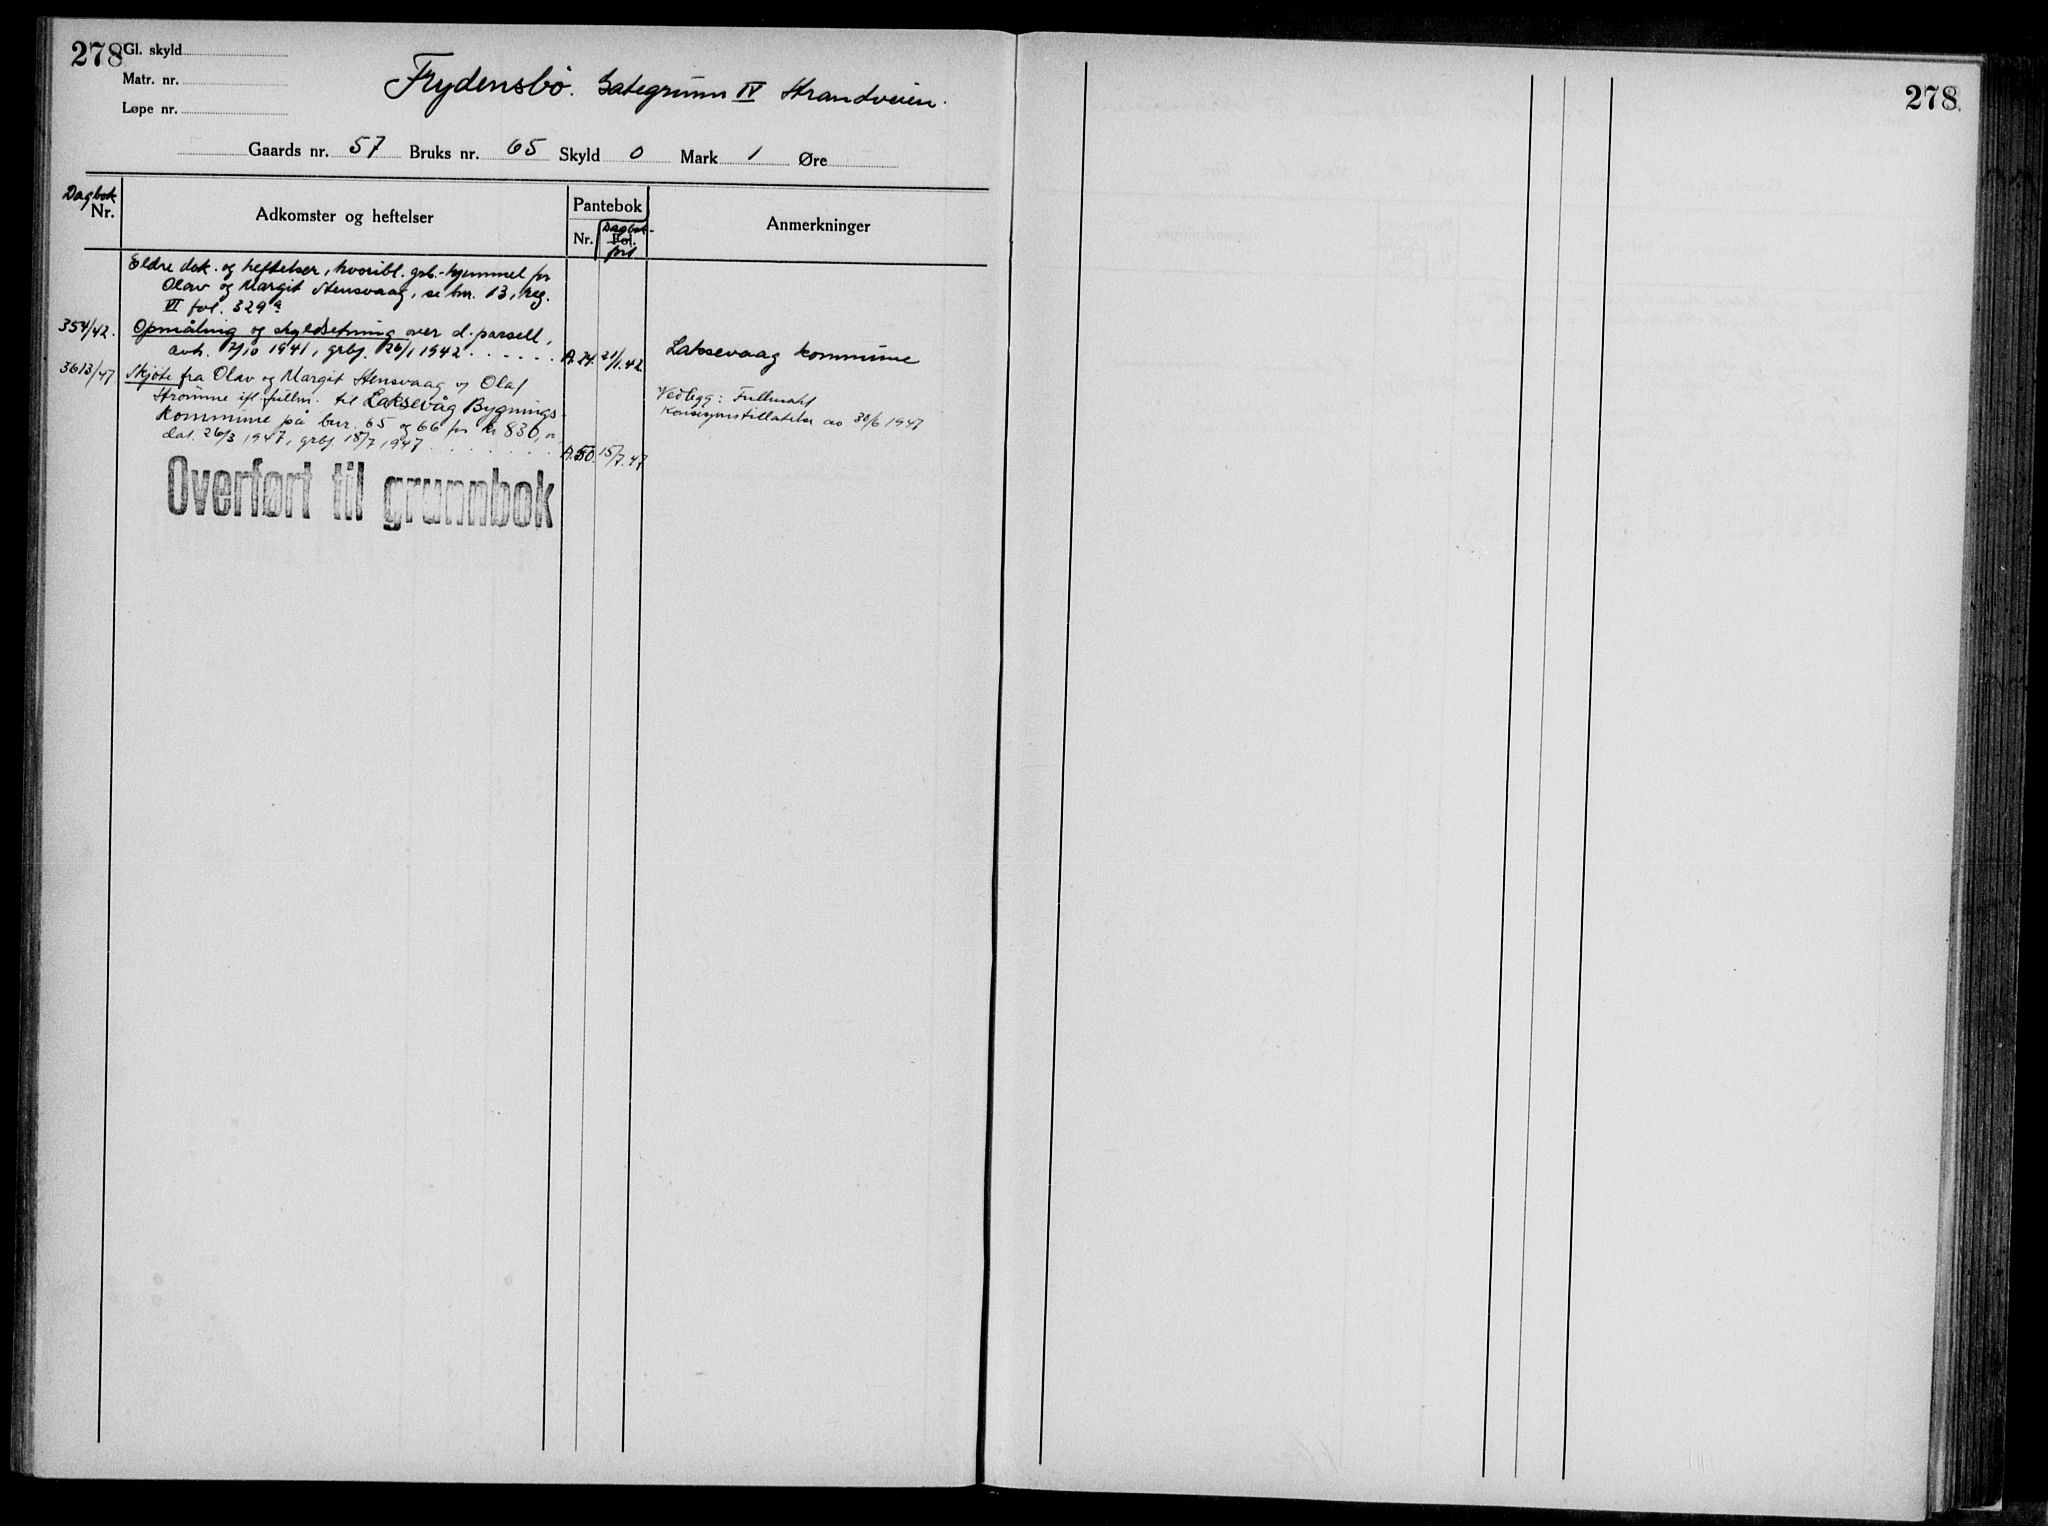 278
Gl. skyld
Matr. nr.
Løpe nr.
Frydensbø. Gategrunn IV Strandveien.
278
Gaards nr. 57 Bruks nr. 65 Skyld 0 Mark 1 Øre
Dagbok
Nr.
Adkomster og heftelser
Pantebok
Nr.
Fol.
Dagbok-
ført
Anmerkninger
Eldre dok. og heftelser, hvoribl. grb.-hjemmel for
Olav og Margit Stensvaag, se bnr. 13, reg.
VI fol. 329a
354/42. Opmåling og skyldsetning over d. parsell,
avh. 7/10 1941, grbf. 26/1 1942 . . . . . . A.24. 21/1.42
Laksevaag kommune
3613/47. Skjøte fra Olav og Margit Stensvaag v/ Olaf
Strømme ifl. fullm. til Laksevåg Bygnings-
kommune på bnr. 65 og 66 for kr 830,
dat. 26/3 1947, grbf. 18/7 1947 . . . . . . . A.50. 15/7.47
Vedlegg: Fullmakt
Konsesjonstillatelse av 30/6 1947
Overført til grunnbok